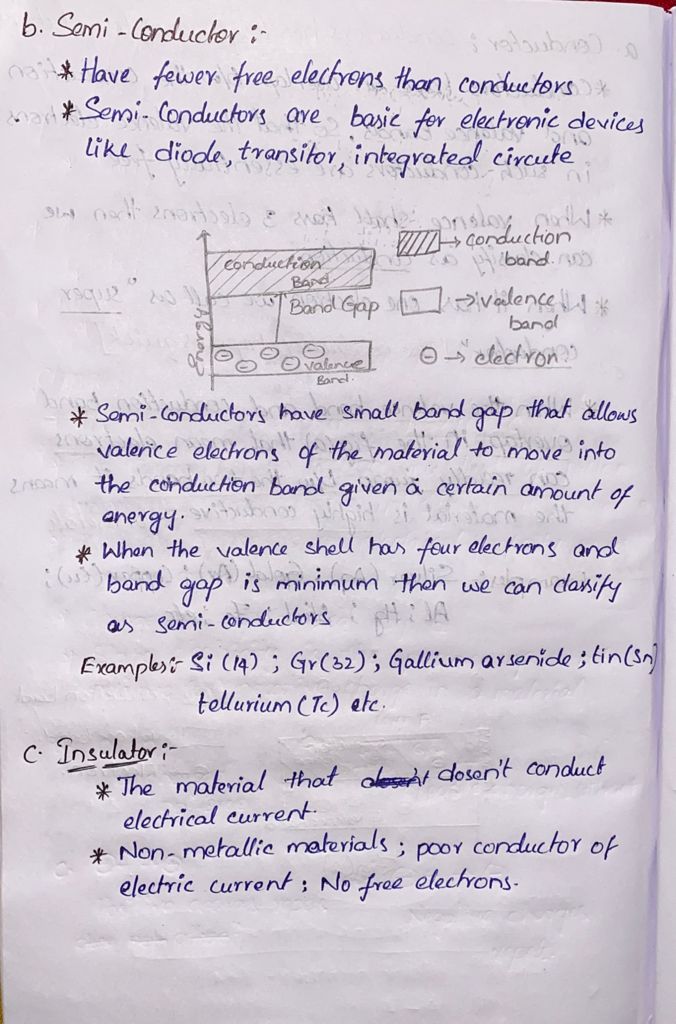 b. Semi-Conductor :-
* Have fewer free electrons than conductors
* Semi-Conductors are basic for electronic devices
like diode, transitor, integrated circute
conduction
Band
Band Gap
Energy
Valence
Band.
→ conduction
band.
→ valence
band
⊖ → electron
* Semi-Conductors have small band gap that allows
valence electrons of the material to move into
the conduction band given a certain amount of
energy.
* When the valence shell has four electrons and
band gap is minimum then we can classify
as semi-conductors
Examples:- Si (14) ; Gr(32) ; Gallium arsenide ; tin(Sn)
tellurium (Te) etc.
C. Insulator :-
* The material that dosen't conduct
electrical current.
* Non-metallic materials ; poor conductor of
electric current ; No free electrons.